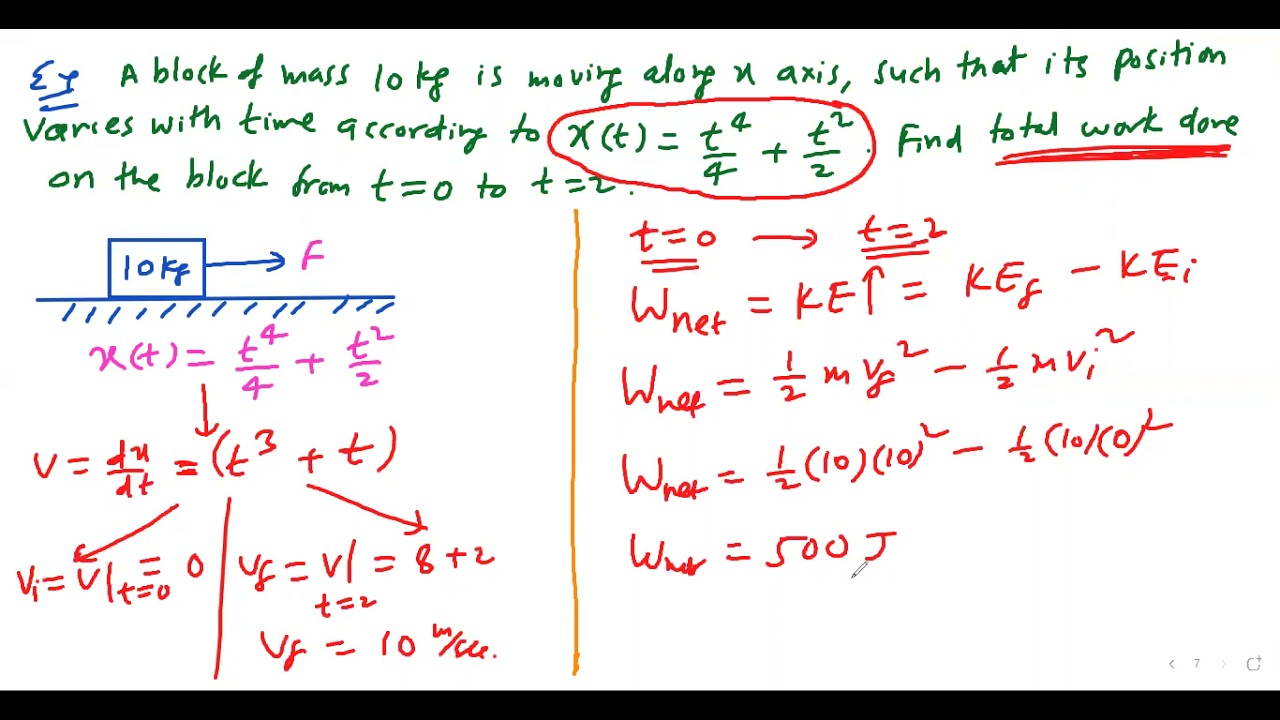 Ex A block of mass 10 kg is moving along x axis, such that its position
varies with time according to x(t) = t⁴/4 + t²/2 . Find total work done
on the block from t=0 to t=2.
10 kg → F
x(t) = t⁴/4 + t²/2
v = dx/dt = (t³ + t)
vᵢ = v|t=0 = 0
v_f = v|t=2 = 8+2
v_f = 10 m/sec.
t=0 → t=2
Wnet = KE↑ = KE_f − KEᵢ
Wnet = 1/2 m v_f² − 1/2 m vᵢ²
Wnet = 1/2 (10)(10)² − 1/2 (10)(0)²
Wnet = 500 J
< 7 >